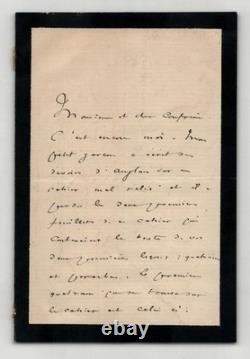 Monsieur et cher Confrère
C'est encore moi. Mon
petit garçon a écrit ses
devoirs d'anglais sur un
cahier mal relié et il a
perdu les deux premiers
feuillets de ce cahier qui
contenaient le texte de vos
deux premières leçons ; quatrains
et proverbes. Le premier
quatrain qui se trouve sur
le cahier est celui ci :